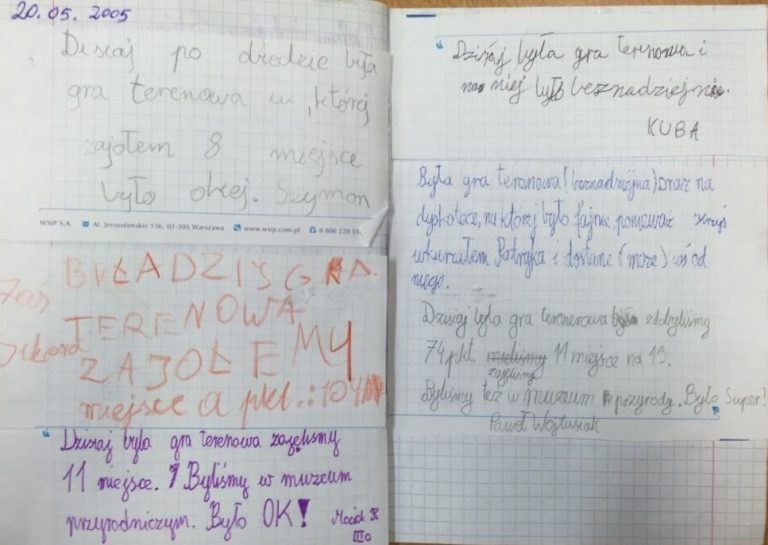 20.05.2005
Dzisiaj po drodze była
gra terenowa w której
zajołem 8 miejsce
było okej. Szymon
WSiP S.A. Al. Jerozolimskie 136, 02-305 Warszawa www.wsip.com.pl 0 800 220
BYŁA DZIŚ GRA
TERENOWA
ZAJOLEMY
miejsce a pkt.: 104
Dzisiaj była gra terenowa zajęliśmy
11 miejsce. Byliśmy w muzeum
przyrodniczym. Było OK!
Maciek
III a
Dzisiaj była gra terenowa i
na niej było beznadziejnie.
KUBA
Była gra terenowa (beznadziejna) oraz na
dyskotece, na której było fajnie, ponieważ
wkurzałem Patryka i dostanę (może) coś od
niego.
Dzisiaj była gra terenerowa zdobyliśmy
74 pkt. zajęliśmy 11 miejsce na 13.
Byliśmy też w muzeum przyrody. Było Super!
Paweł Wojtasiak